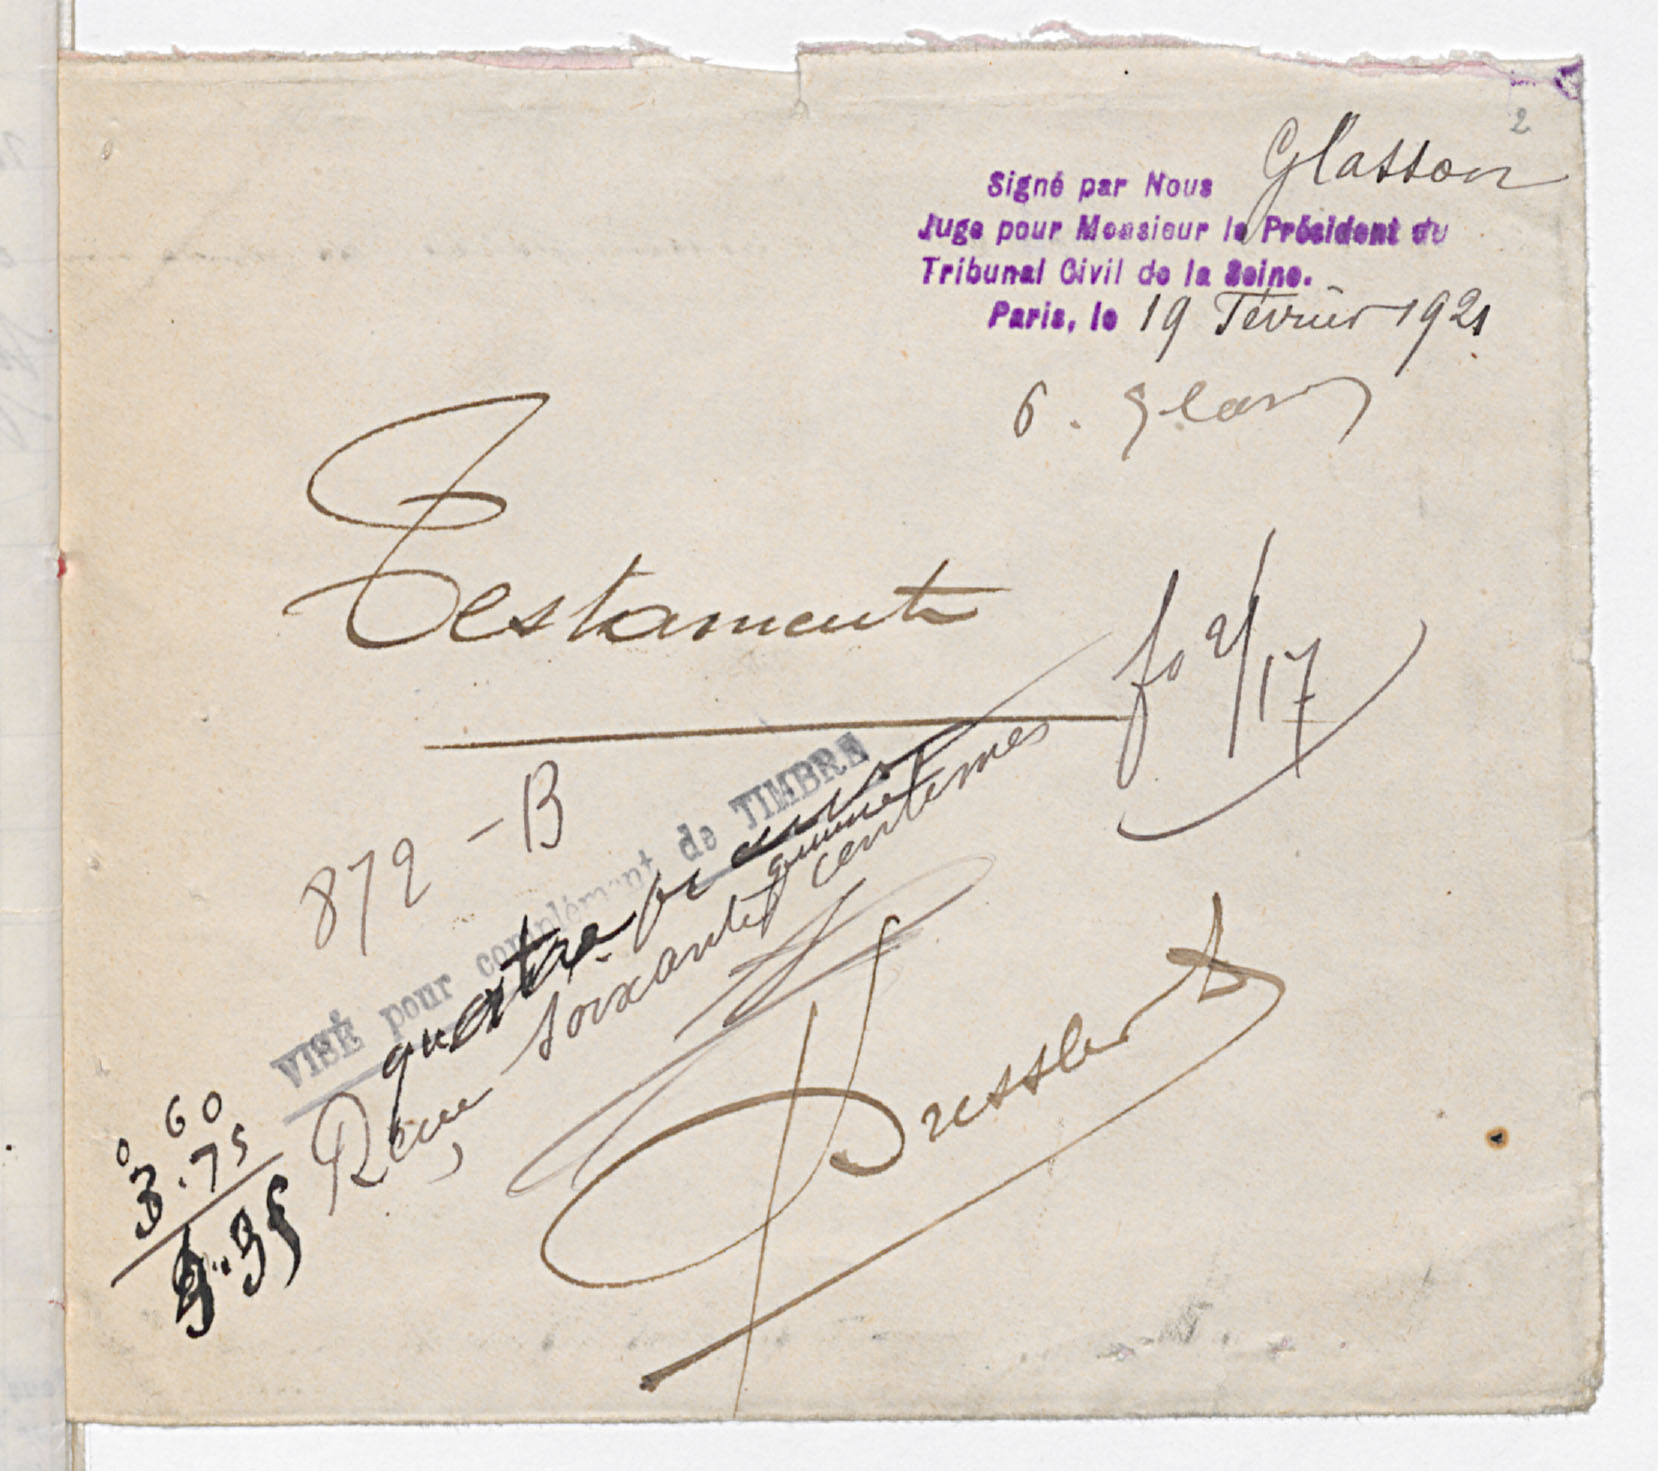 2
Signé par Nous Glasson
Juge pour Monsieur le Président du
Tribunal Civil de la Seine.
Paris, le 19 Février 1921
Testament
fo 2/17
872 - B
VISÉ pour complément de TIMBRE
quatre
Reçu soixante quinze centimes
0 60
3.75
Dressler